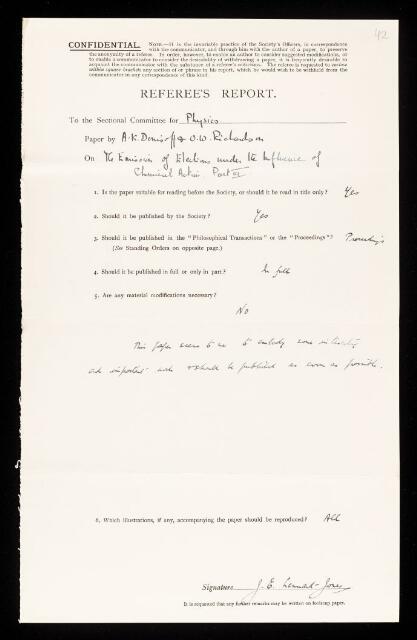 42
CONFIDENTIAL. NOTE.—It is the invariable practice of the Society's Officers, in correspondence
with the communicator, and through him with the author of a paper, to preserve
the anonymity of a referee. In order, however, to enable an author to consider suggested modifications, or
to enable a communicator to consider the desirability of withdrawing a paper, it is frequently desirable to
acquaint the communicator with the substance of a referee's criticism. The referee is requested to enclose
within square brackets any section of or phrase in his report, which he would wish to be withheld from the
communicator in any correspondence of this kind.
REFEREE'S REPORT.
To the Sectional Committee for Physics
Paper by A. K. Denisoff & O. W. Richardson
On The Emission of Electrons under the Influence of
Chemical Action Part
1. Is the paper suitable for reading before the Society, or should it be read in title only? Yes
2. Should it be published by the Society? Yes
3. Should it be published in the "Philosophical Transactions" or the "Proceedings"? Proceedings
(See Standing Orders on opposite page.)
4. Should it be published in full or only in part? In full
5. Are any material modifications necessary?
No
This paper seems to me to embody some interesting
and important work & should be published as soon as possible.
6. Which illustrations, if any, accompanying the paper should be reproduced? All
Signature J. E. Lennard-Jones
It is requested that any further remarks may be written on foolscap paper.